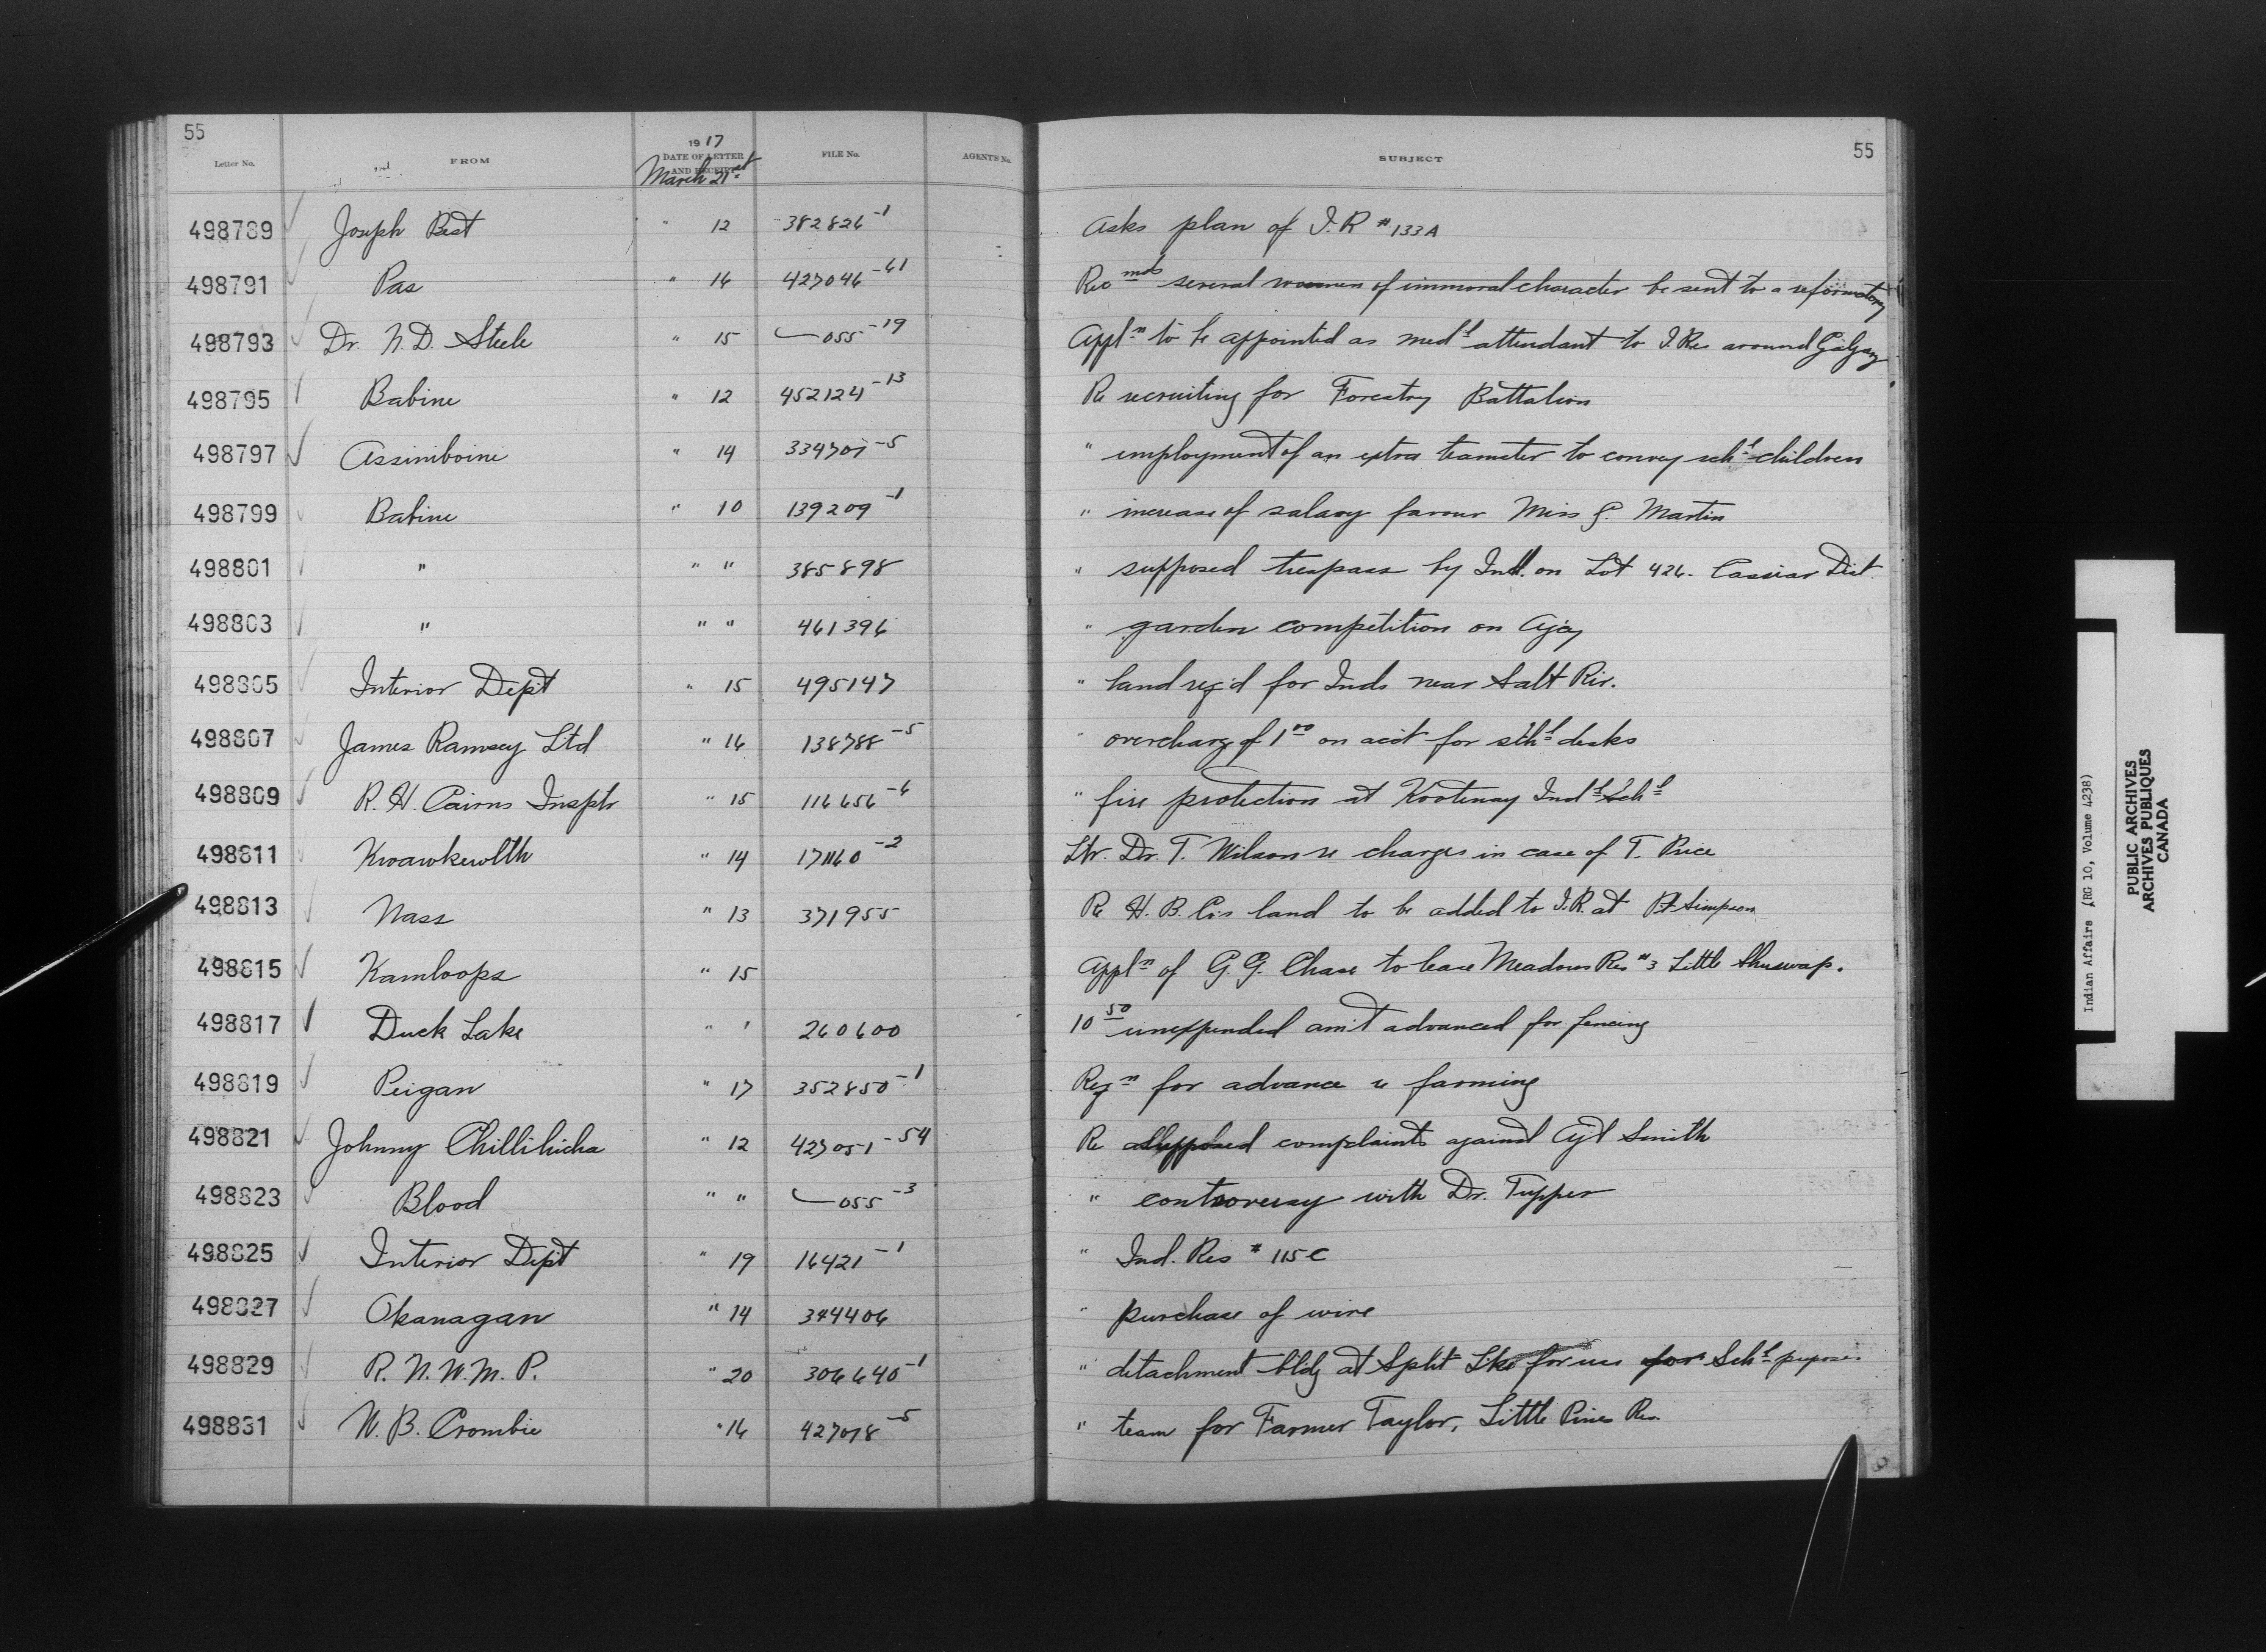 55
Letter No. FROM 1917 DATE OF LETTER AND RECEIPT FILE No. AGENT'S No. SUBJECT 55
March 21st
498789 Joseph Best " 12 382826-1 Asks plan of I.R #133A
498791 Pas " 16 427046-61 Recmds several women of immoral character be sent to a reformatory
498793 Dr. N.D. Steele " 15 055-19 Appln to be appointed as medl attendant to I.Res around Calgary
498795 Babine " 12 452124-13 Re recruiting for Forestry Battalion
498797 Assiniboine " 14 334701-5 " employment of an extra teamster to convey schl children
498799 Babine " 10 139209-1 " increase of salary favour Miss G. Martin
498801 " " " 385898 " supposed trespass by Ind. on Lot 426. Cassiar Dist.
498803 " " " 461396 " garden competition on Agcy
498805 Interior Dept " 15 495147 " land req'd for Inds near Salt Riv.
498807 James Ramsey Ltd " 16 138788-5 " overcharge of 1 00 on acct for schl desks
498809 R. H. Cairns Insptr " 15 116656-6 " fire protection at Kootenay Indl Schl
498811 Kwawkewlth " 14 171160-2 Ltr. Dr. T. Wilson re charges in case of T. Price
498813 Nass " 13 371955 Re H. B. Co's land to be added to I.R. at Pt Simpson
498815 Kamloops " 15 Appln of G. G. Chase to lease Meadows Res #3 Little Shuswap.
498817 Duck Lake " 1 260600 10 50 unexpended am't advanced for fencing
498819 Peigan " 17 352850-1 Reqn for advance re farming
498821 Johnny Chillihicha " 12 427051-54 Re supposed complaints against Agt Smith
498823 Blood " " 055-3 " controversy with Dr. Tupper
498825 Interior Dept " 19 16421-1 " Ind. Res # 115C
498827 Okanagan " 14 344406 " purchase of wire
498829 R. N. W. M. P. " 20 306640-1 " detachment bldg at Split Lke for use for Schl purposes
498831 W. B. Crombie " 16 427018-5 " team for Farmer Taylor, Little Pines Res.
Indian Affairs (RG 10, Volume 4238)
PUBLIC ARCHIVES
ARCHIVES PUBLIQUES
CANADA